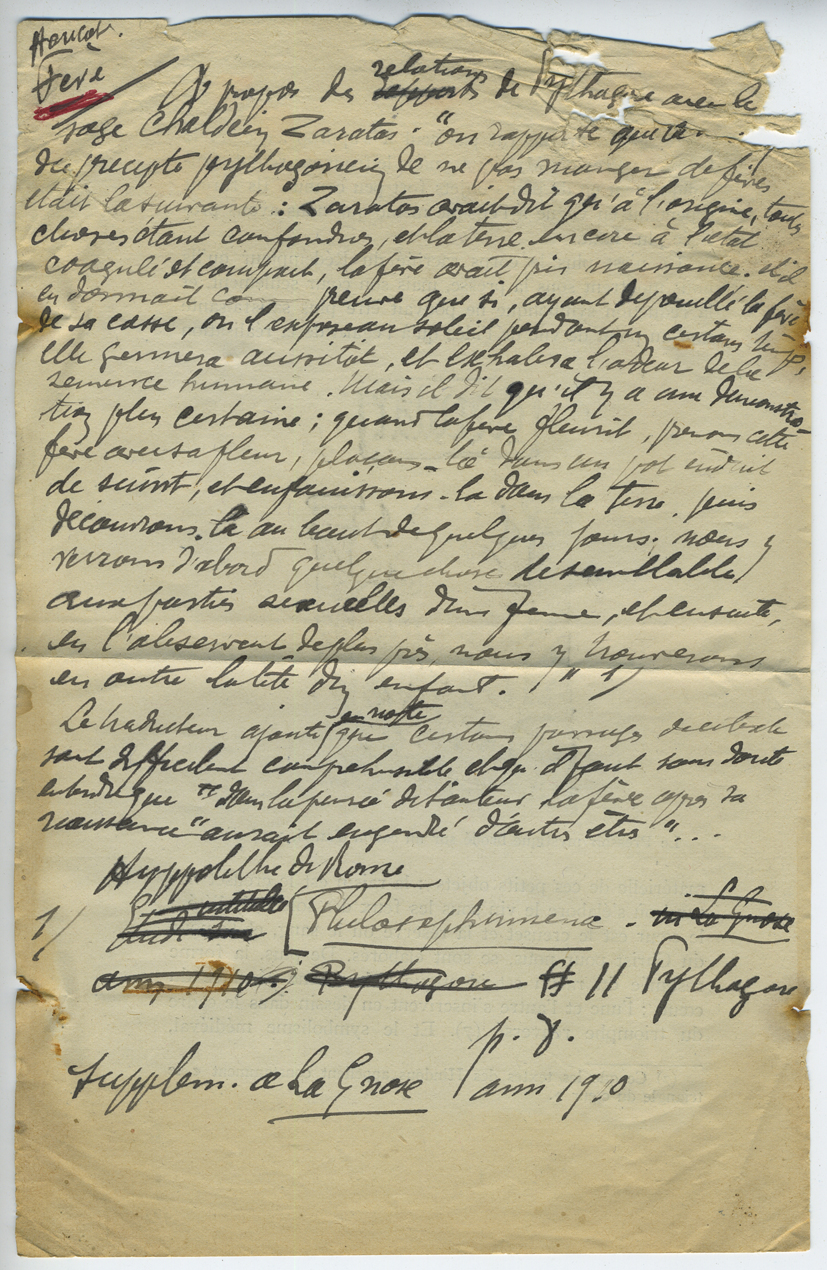 Haricot.
Fève
A propos des relations rapports de Pythagore avec le
sage Chaldéen Zaratas. "on rapporte que la
du précepte pythagoricien de ne pas manger de fèves
était la suivante : Zaratas avait dit qu'à l'origine, toutes
choses étant confondues, et la terre encore à l'état
coagulé et compact, la fève avait pris naissance. et il
en donnait comme preuve que si, ayant dépouillé la fève
de sa cosse, on l'expose au soleil pendant un certain temps,
elle germera aussitôt, et exhalera l'odeur de la
semence humaine. Mais il dit qu'il y a une démonstra-
tion plus certaine ; quand la fève fleurit, prenons cette
fève avec sa fleur, plaçons-la dans un pot enduit
de suint, et enfouissons-la dans la terre. puis
découvrons-la au bout de quelques jours. nous y
verrons d'abord quelque chose de semblable
aux parties sexuelles d'une femme, et ensuite,
en l'observant de plus près, nous y trouverons
en outre la tête d'un enfant." 1)
Le traducteur ajoute en note que certains passages de ce texte
sont difficilement compréhensible et qu'il faut sans doute
entendre que "dans la pensée de l'auteur la fève après sa
naissance "aurait engendré d'autres êtres"...
Hyppolithe de Rome
1/ intitulée [Philosophumena - in La Gnose
ann 1910 Pythagore § 11 Pythagore
p. 8.
Supplem. a La Gnose ann 1910